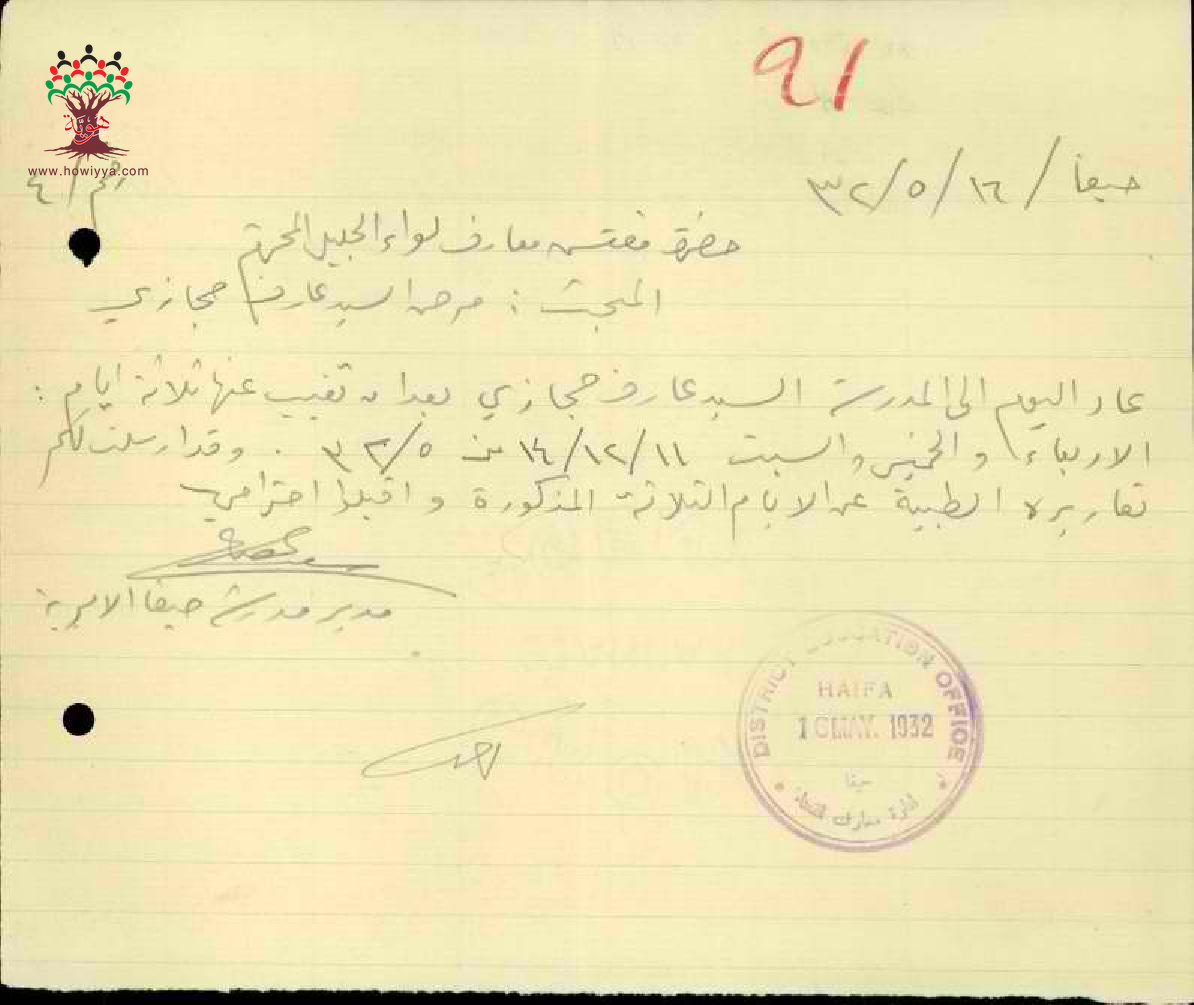 91
هوية
www.howiyya.com
حيفا / ١٦ / ٥ / ٣٢
٤ /
حضرة مفتش معارف لواء الجليل المحترم
المبحث : مرض السيد عارف حجازي
عاد اليوم الى المدرسة السيد عارف حجازي بعد ان تغيب عنها ثلاثة ايام :
الاربعاء والخميس والسبت ١١/١٢/١٤ من ٣٢/٥ . وقد ارسلت لكم
تقاريره الطبية عن الايام الثلاثة المذكورة و اقبلوا احترامي
مدير مدرسة حيفا الاميرية
DISTRICT EDUCATION OFFICE
HAIFA
16 MAY. 1932
حيفا
ادارة معارف